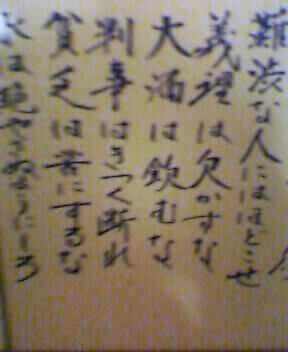 難渋な人にはほどこせ
義理は欠かすな
大酒は飲むな
判事はきつく断れ
貧乏は苦にするな
火は絶やさぬようにしろ